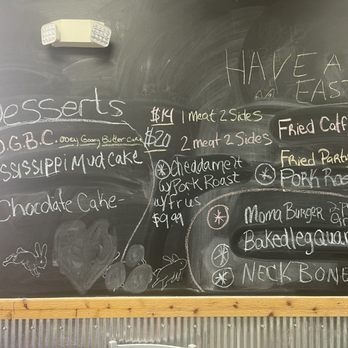 HAVE A
EAST
Desserts
O.G.B.C. ooey Gooey Butter Cake
ssissippi Mud Cake
Chocolate Cake-
$14 1 meat 2 Sides
$20 2 meat 2 Sides
Cheddamelt
w/Pork Roast
w/frus
$9.99
Fried Catf
Fried Parta
Pork Roas
Moma Burger
Baked leg Quar
NECK BONE